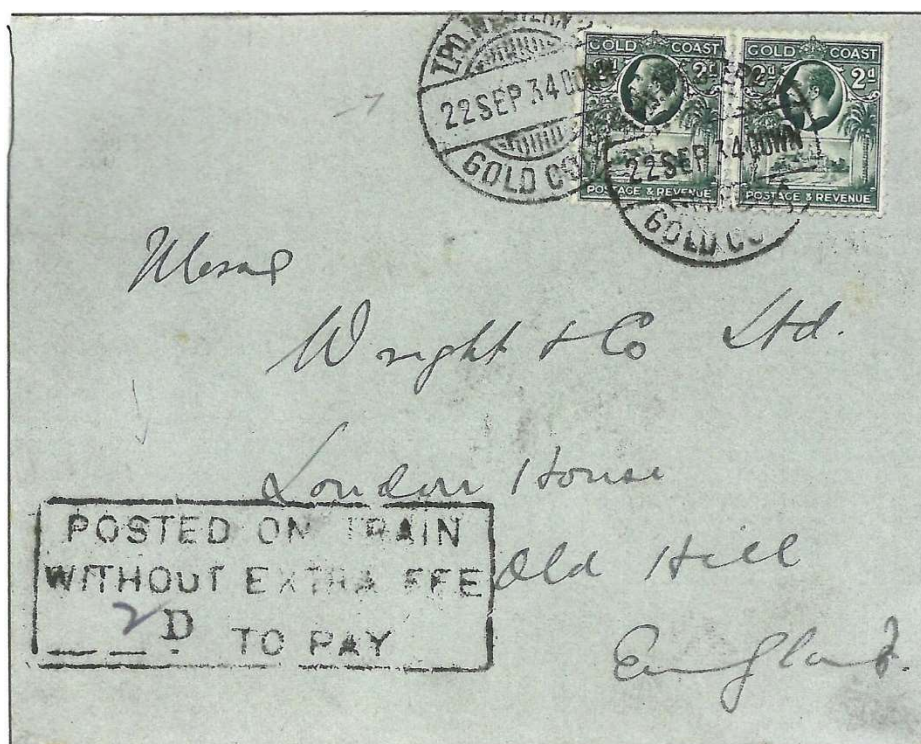 T.P.O. WESTERN 2
22 SEP 34 DOWN
GOLD CO
GOLD COAST
2d
POSTAGE & REVENUE
GOLD COAST
2d 2d
POSTAGE & REVENUE
22 SEP 34 DOWN
GOLD CO
Messrs
Wright & Co Ltd.
London House
Old Hill
England.
POSTED ON TRAIN
WITHOUT EXTRA FEE
2 D. TO PAY